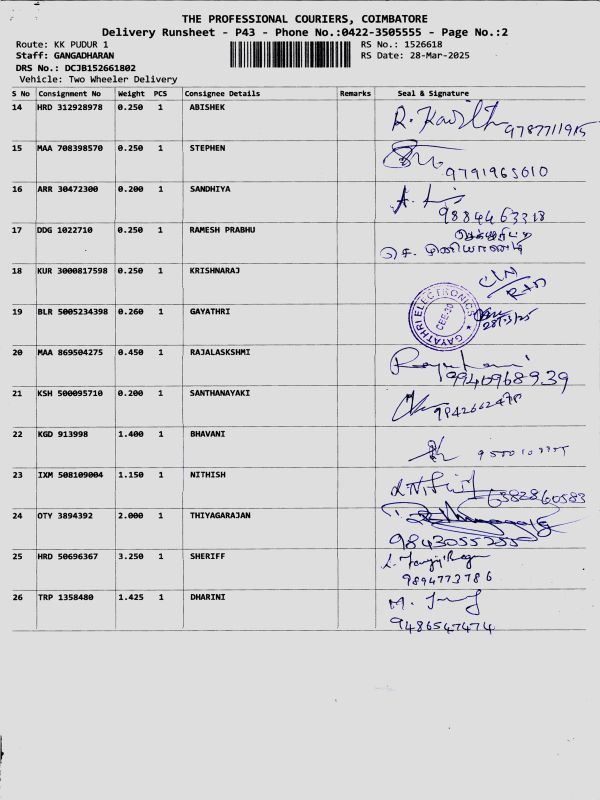 THE PROFESSIONAL COURIERS, COIMBATORE
Delivery Runsheet - P43 - Phone No.:0422-3505555 - Page No.:2
Route: KK PUDUR 1 RS No.: 1526618
Staff: GANGADHARAN RS Date: 28-Mar-2025
DRS No.: DCJB152661802
Vehicle: Two Wheeler Delivery
S No Consignment No Weight PCS Consignee Details Remarks Seal & Signature
14 HRD 312928978 0.250 1 ABISHEK R.
15 MAA 708398570 0.250 1 STEPHEN
9791965010
16 ARR 30472300 0.200 1 SANDHIYA A.
9884463318
17 DDG 1022710 0.250 1 RAMESH PRABHU
18 KUR 3000817598 0.250 1 KRISHNARAJ
19 BLR 5005234398 0.260 1 GAYATHRI GAYATHRI ELECTRONICS CBE-30 28/3/25
20 MAA 869504275 0.450 1 RAJALASKSHMI
9940968939
21 KSH 500095710 0.200 1 SANTHANAYAKI
22 KGD 913998 1.400 1 BHAVANI
23 IXM 508109004 1.150 1 NITHISH
6382860583
24 OTY 3894392 2.000 1 THIYAGARAJAN
9843055255
25 HRD 50696367 3.250 1 SHERIFF
9894773786
26 TRP 1358480 1.425 1 DHARINI M.
9486547474